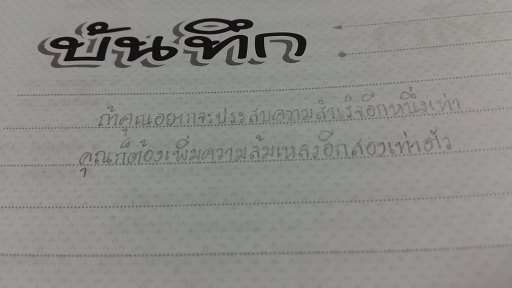 บันทึก
ถ้าคุณอยากจะประสบความสำเร็จอีกหนึ่งเท่า
คุณก็ต้องเพิ่มความล้มเหลวอีกสองเท่าตัว